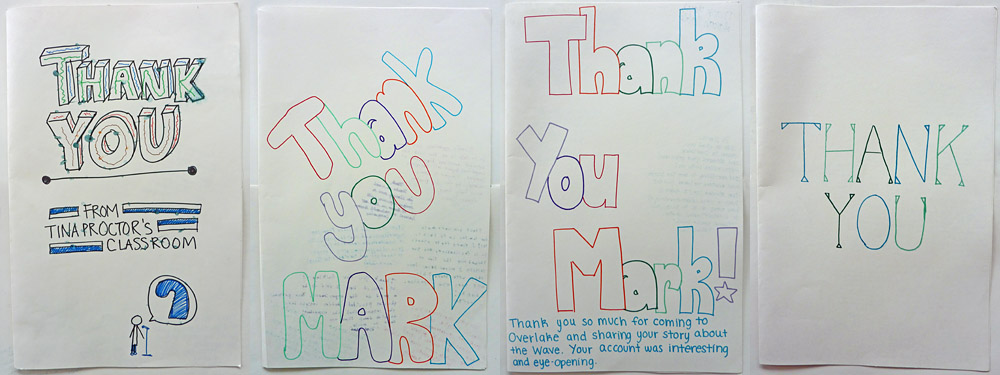 THANK
YOU
FROM
TINA PROCTOR'S
CLASSROOM
Thank
you
MARK
Thank
You
Mark!
Thank you so much for coming to
Overlake and sharing your story about
the Wave. Your account was interesting
and eye-opening.
THANK
YOU